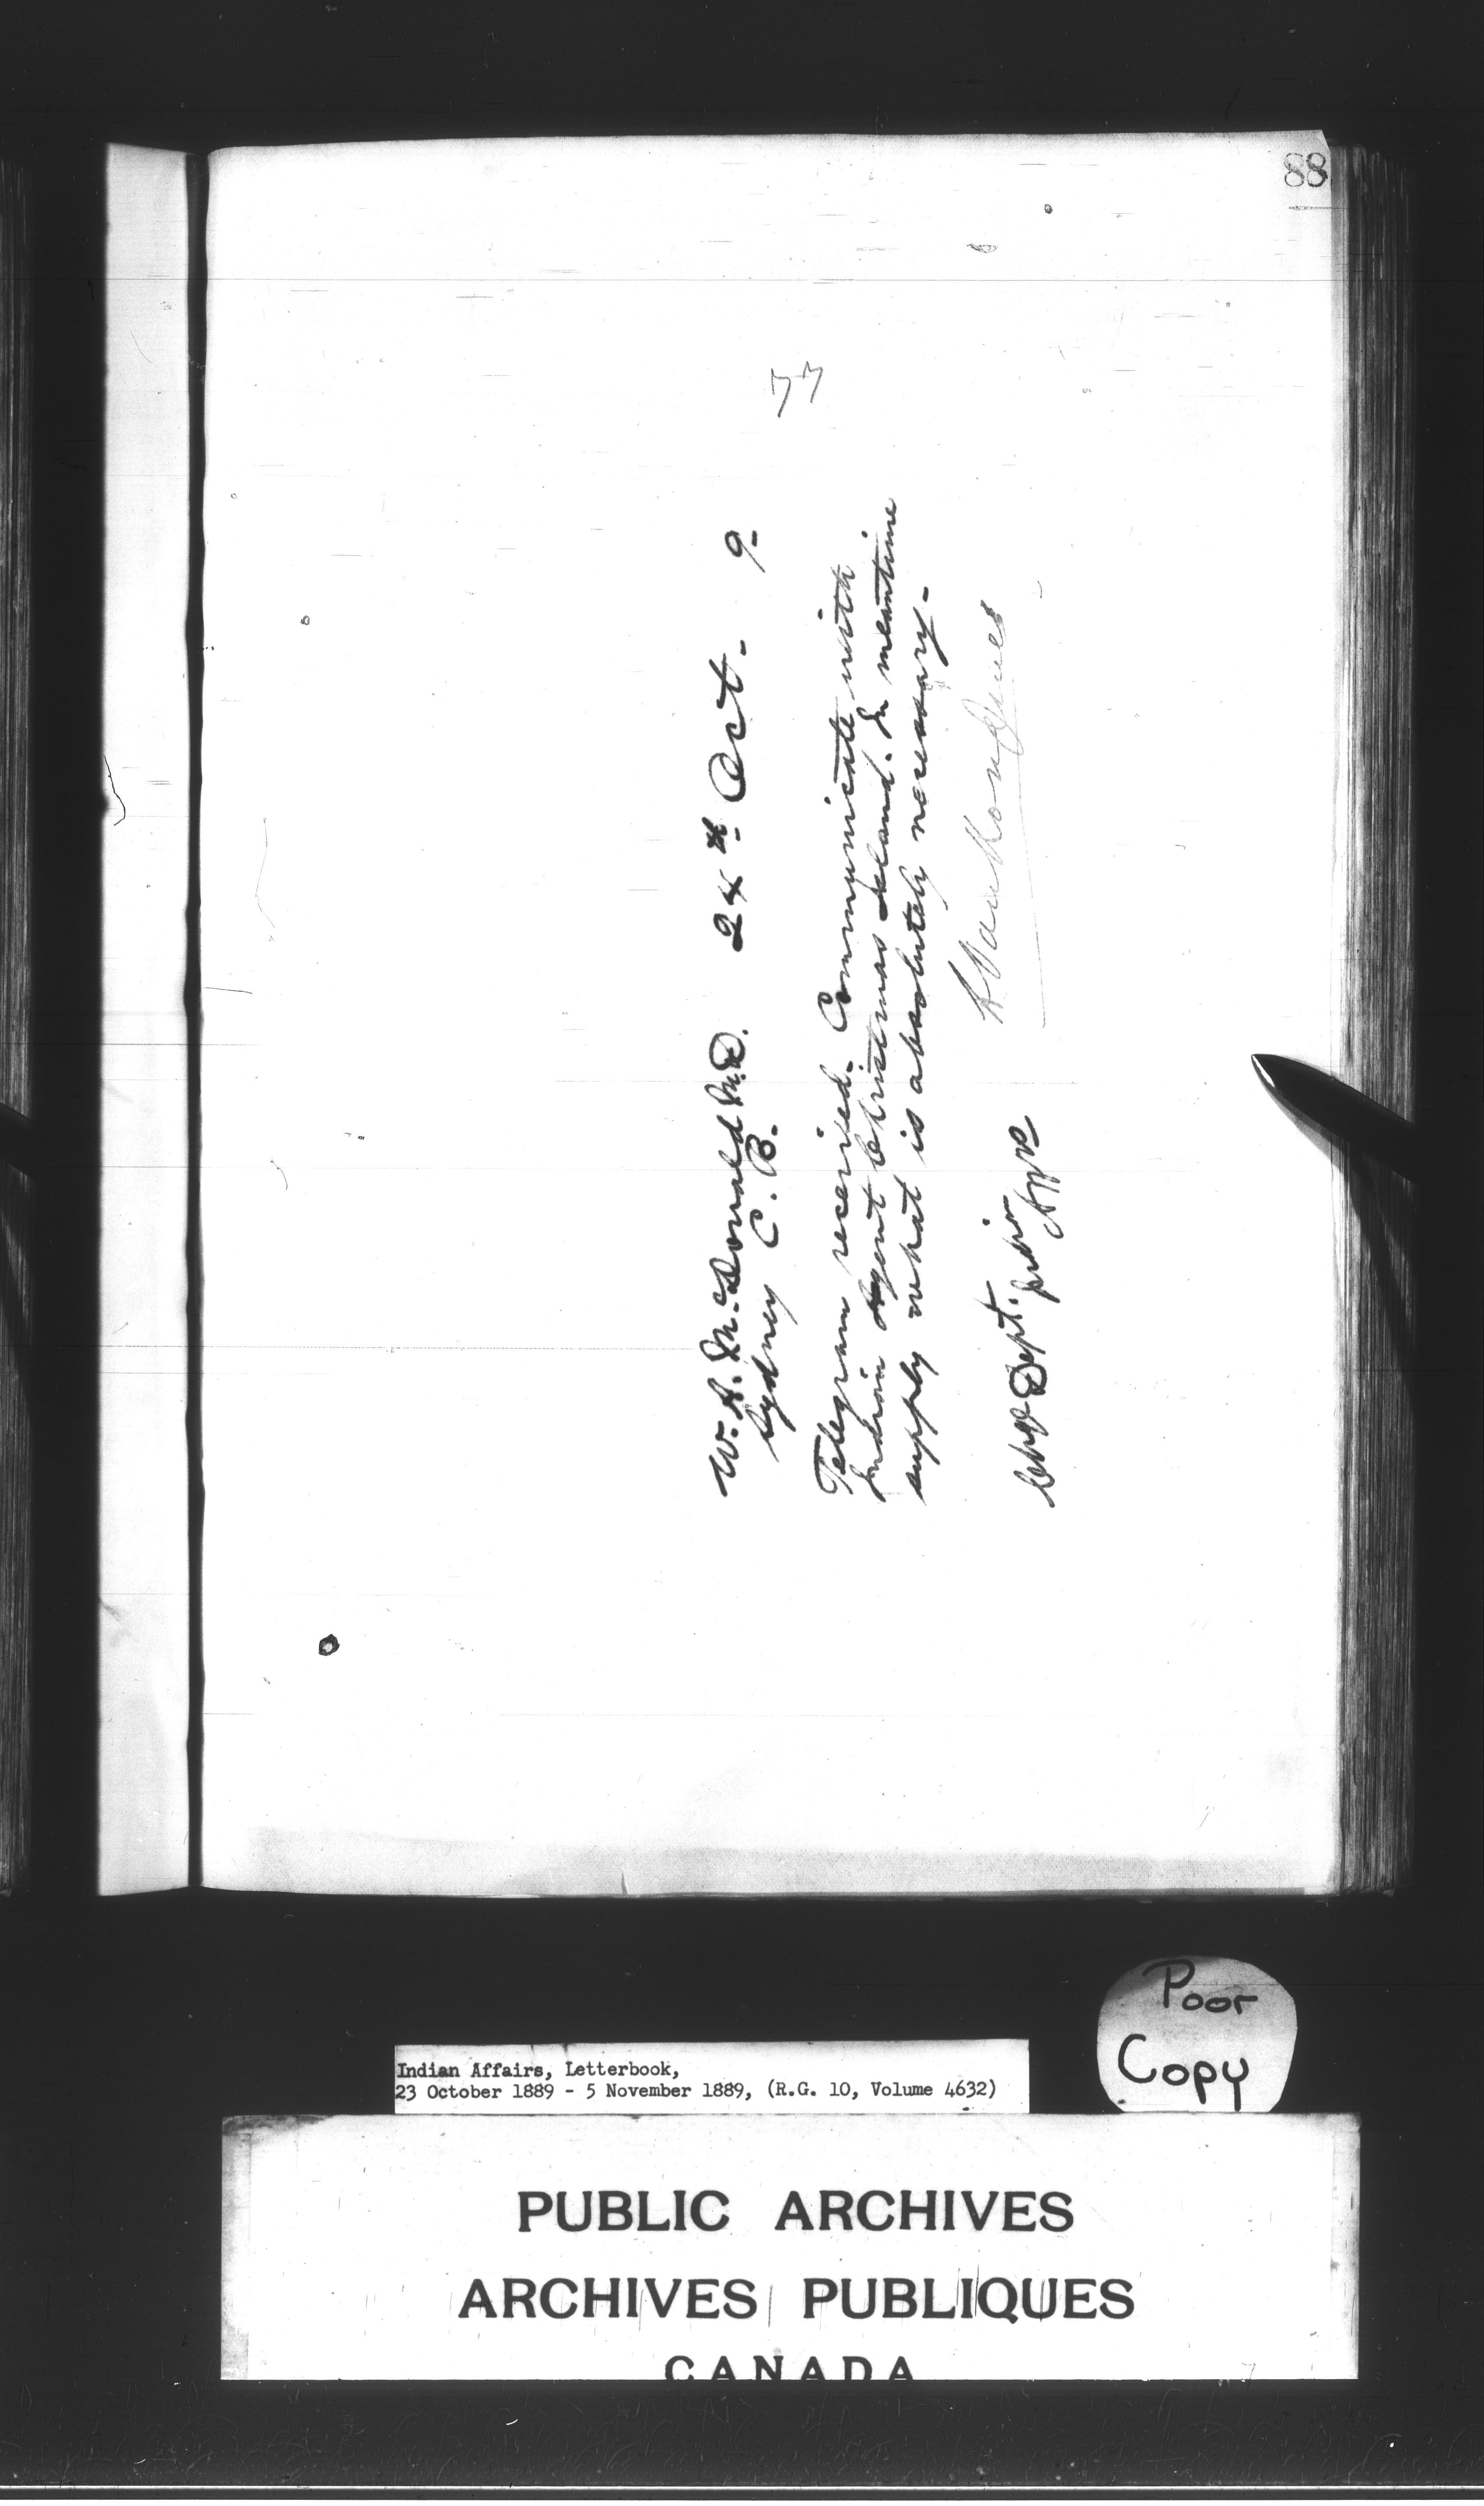 88
77
W. A. McDonald M.D. 24th Oct. 9-
Sydney C. B.
Telegram received. Communicate with
Indian Agent Christmas Island. In meantime
supply what is absolutely necessary.
L Vankoughnet
Chg Dept.
Poor
Copy
Indian Affairs, Letterbook,
23 October 1889 - 5 November 1889, (R.G. 10, Volume 4632)
PUBLIC ARCHIVES
ARCHIVES PUBLIQUES
CANADA